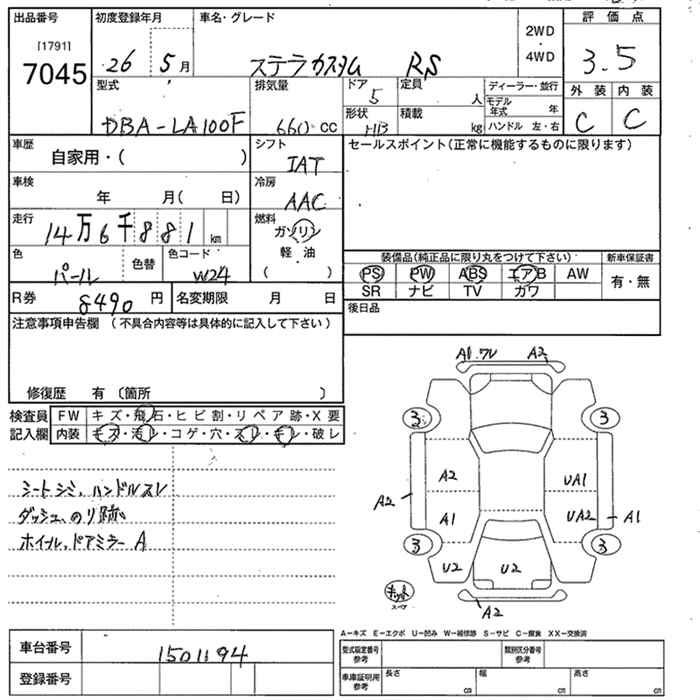 出品番号 初度登録年月 車名・グレード 2WD・4WD 評価点
[1791]
7045 26 5月 ステラカスタム RS 3.5
型式 排気量 ドア 定員 ディーラー・並行 外装 内装
DBA-LA100F 660 cc 5 人 モデル年式 年 C C
形状 積載 kg ハンドル 左・右
車歴 自家用・( ) シフト IAT セールスポイント(正常に機能するものに限ります)
車検 年 月( 日) 冷房 AAC
走行 14万6千881km 燃料 ガソリン・軽・油 ( )
色 パール 色替 色コード W24
装備品(純正品に限り丸をつけて下さい) 新車保証書
PS PW ABS エアB AW 有・無
SR ナビ TV ガワ
R券 8490円 名変期限 月 日 後日品
注意事項申告欄 (不具合内容等は具体的に記入して下さい)
修復歴 有 (箇所 )
検査員記入欄 FW キズ・飛石・ヒビ割・リペア跡・X要
内装 キズ・汚レ・コゲ・穴・スレ・キレ・破レ
シートシミ、ハンドルスレ
ダッシュ、のり跡
ホイール、ドアミラー A
A1.ワレ A2
3 3
A2 UA1
A2 A1 UA2 A1
3 3
U2 U2
キット
スペア
A2
A－キズ E－エクボ U－凹み W－補修跡 S－サビ C－腐食 XX－交換済
車台番号 1501194
登録番号
型式指定番号参考 類別区分番号参考
車庫証明用参考 長さ cm 幅 cm 高さ cm